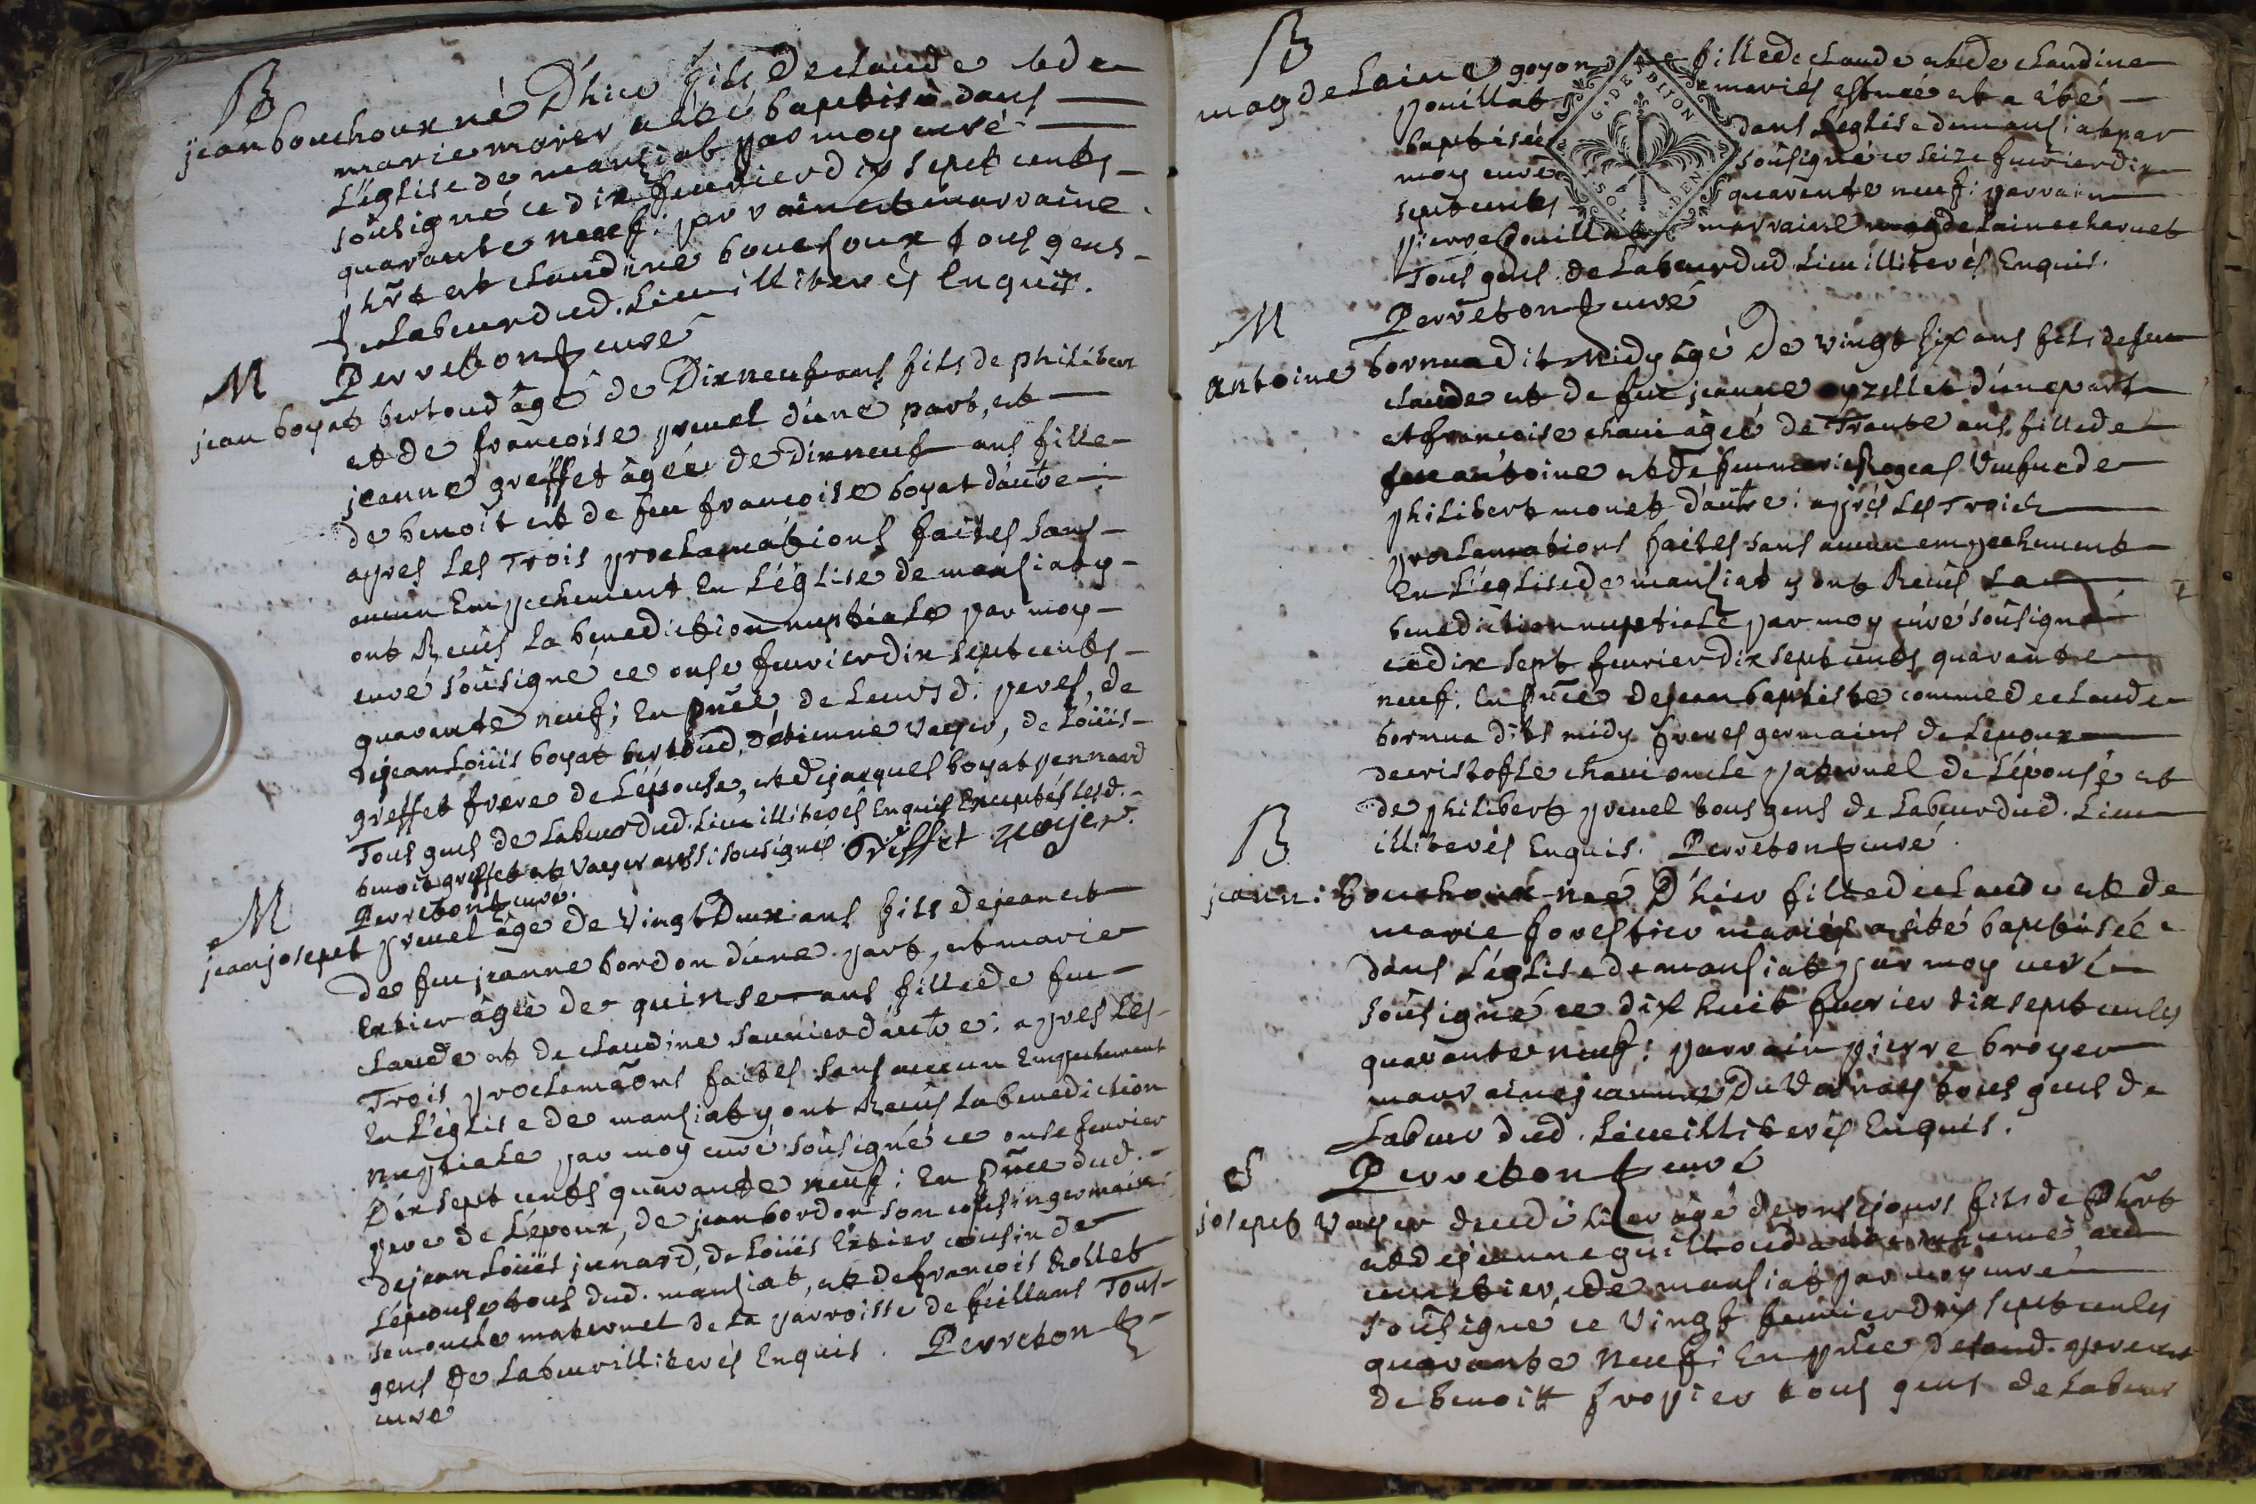 B
jean bouchoux né D'hier fils De claude et de
marie morier a été baptisé dans
L'église de mansiat par moy curé
soûsigné ce dix fevrier dix sept cents
quarante neuf: parrain et marraine
phbt et claudine bouchoux tous gens
de Labeur dud. Lieu illiterés Enquis.
Perreton curé
M
jean boyat bertoud âgé de Dix neuf ans fils de philibert
et de francoise prevel d'une part, et
jeanne greffet âgée de Dix neuf ans fille
de benoit et de feu francoise boyat d'autre:
apres Les Trois proclamations faites sans
aucun Empechement En L'église de mansiat y
ont Recûs La benediction nuptiale par moy
curé soûsigné ce onse fevrier dix sept cents
quarante neuf; En pnce de Leurs d. peres, de
de jean Loüis boyat bertoud, d'etienne vayer, de Loüis
greffet frere de L'épouse, et de jacques boyat pennard
Tous gens de Labeur dud. Lieu illiterés Enquis Exceptés Lesd.
benoit greffet et vayer aussi soûsignés. Greffet voyer
Perreton curé.
M
jean josept prevel âgé de Vingt Deux ans fils de jean et
de feu jeanne bordon d'une part, et marie
Extier âgée de quinse ans fille de feu
claude et de claudine saunier d'autre; apres Les
Trois proclamãons faites sans aucun Empechement
En L'église de mansiat y ont Recûs La benediction
nuptiale par moy curé soûsigné ce onse fevrier
Dix sept cents quarante neuf; En pnce dud.
pere de L'époux, de jean bordon son cousin germain
de jean Loüis junard, de Loüis Extier cousin de
L'épouse tous dud. mansiat, et de francois Rollet
son oncle maternel de La parroisse de feillans Tous
gens de Labeur illiterés Enquis. Perreton
curé
B
magdelaine goyon fille de claude et de claudine
pouillat mariés est née et a été
baptisée dans L'église de mansiat par
moy curé soûsigné ce seize fevrier dix
sept cents quarante neuf: parrain
pierre pouillat marraine magdelaine charvet
Tous gens de Labeur dud Lieu illiterés Enquis.
Perreton curé
G. DE DIJON
SOL
M
antoine bornua dit Midy âgé De vingt six ans fils de feu
claude et de feu jeanne oyzellet d'une part
et francoise chavi âgée de Trante ans fille de
feu antoine et de feu marie Rogeas Veufve de
philibert monet d'autre: aprés Les Trois
proclamations faites sans aucun empechement
En L'église de mansiat y ont Recûs La
benediction nuptiale par moy cûré soûsigné
ce dix sept fevrier dix sept cents quarante
neuf. En pnce de jean baptiste comme de claude
bornua dits midy freres germains de L'époux
de cristofle chavi oncle paternel de L'épouse et
de philibert prevel tous gens de Labeur dud. Lieu
illiterés Enquis. Perreton curé
B
jeann: Bouchoux née D'hier fille de claude et de
marie forestier mariés a été baptisée
dans L'église de mansiat par moy curé
soûsigné ce dix huit fevrier dix sept cents
quarante neuf: parrain pierre broyer
marraine jeanne Du Varnay tous gens de
Labeur dud. Lieu illiterés Enquis.
Perreton curé
S
josept vayer decedé hier âgé de onse jours fils de Phbt
et de jeanne guilloud a été inhumé au
cimetier de mansiat par moy curé
soûsigné ce Vingt fevrier dix sept cents
quarante neuf; En pnce de sond. pere et
de benoitt fropier tous gens de Labeur